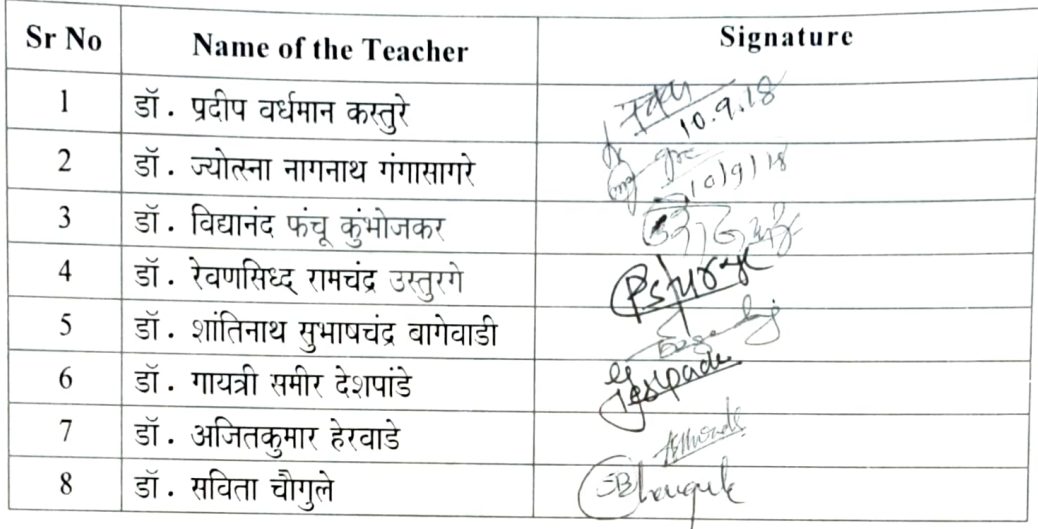 Sr No Name of the Teacher Signature
1 डॉ. प्रदीप वर्धमान कस्तुरे 10.9.18
2 डॉ. ज्योत्स्ना नागनाथ गंगासागरे 10/9/18
3 डॉ. विद्यानंद फंचू कुंभोजकर
4 डॉ. रेवणसिध्द् रामचंद्र उस्तुरगे
5 डॉ. शांतिनाथ सुभाषचंद्र वागेवाडी
6 डॉ. गायत्री समीर देशपांडे
7 डॉ. अजितकुमार हेरवाडे
8 डॉ. सविता चौगुले